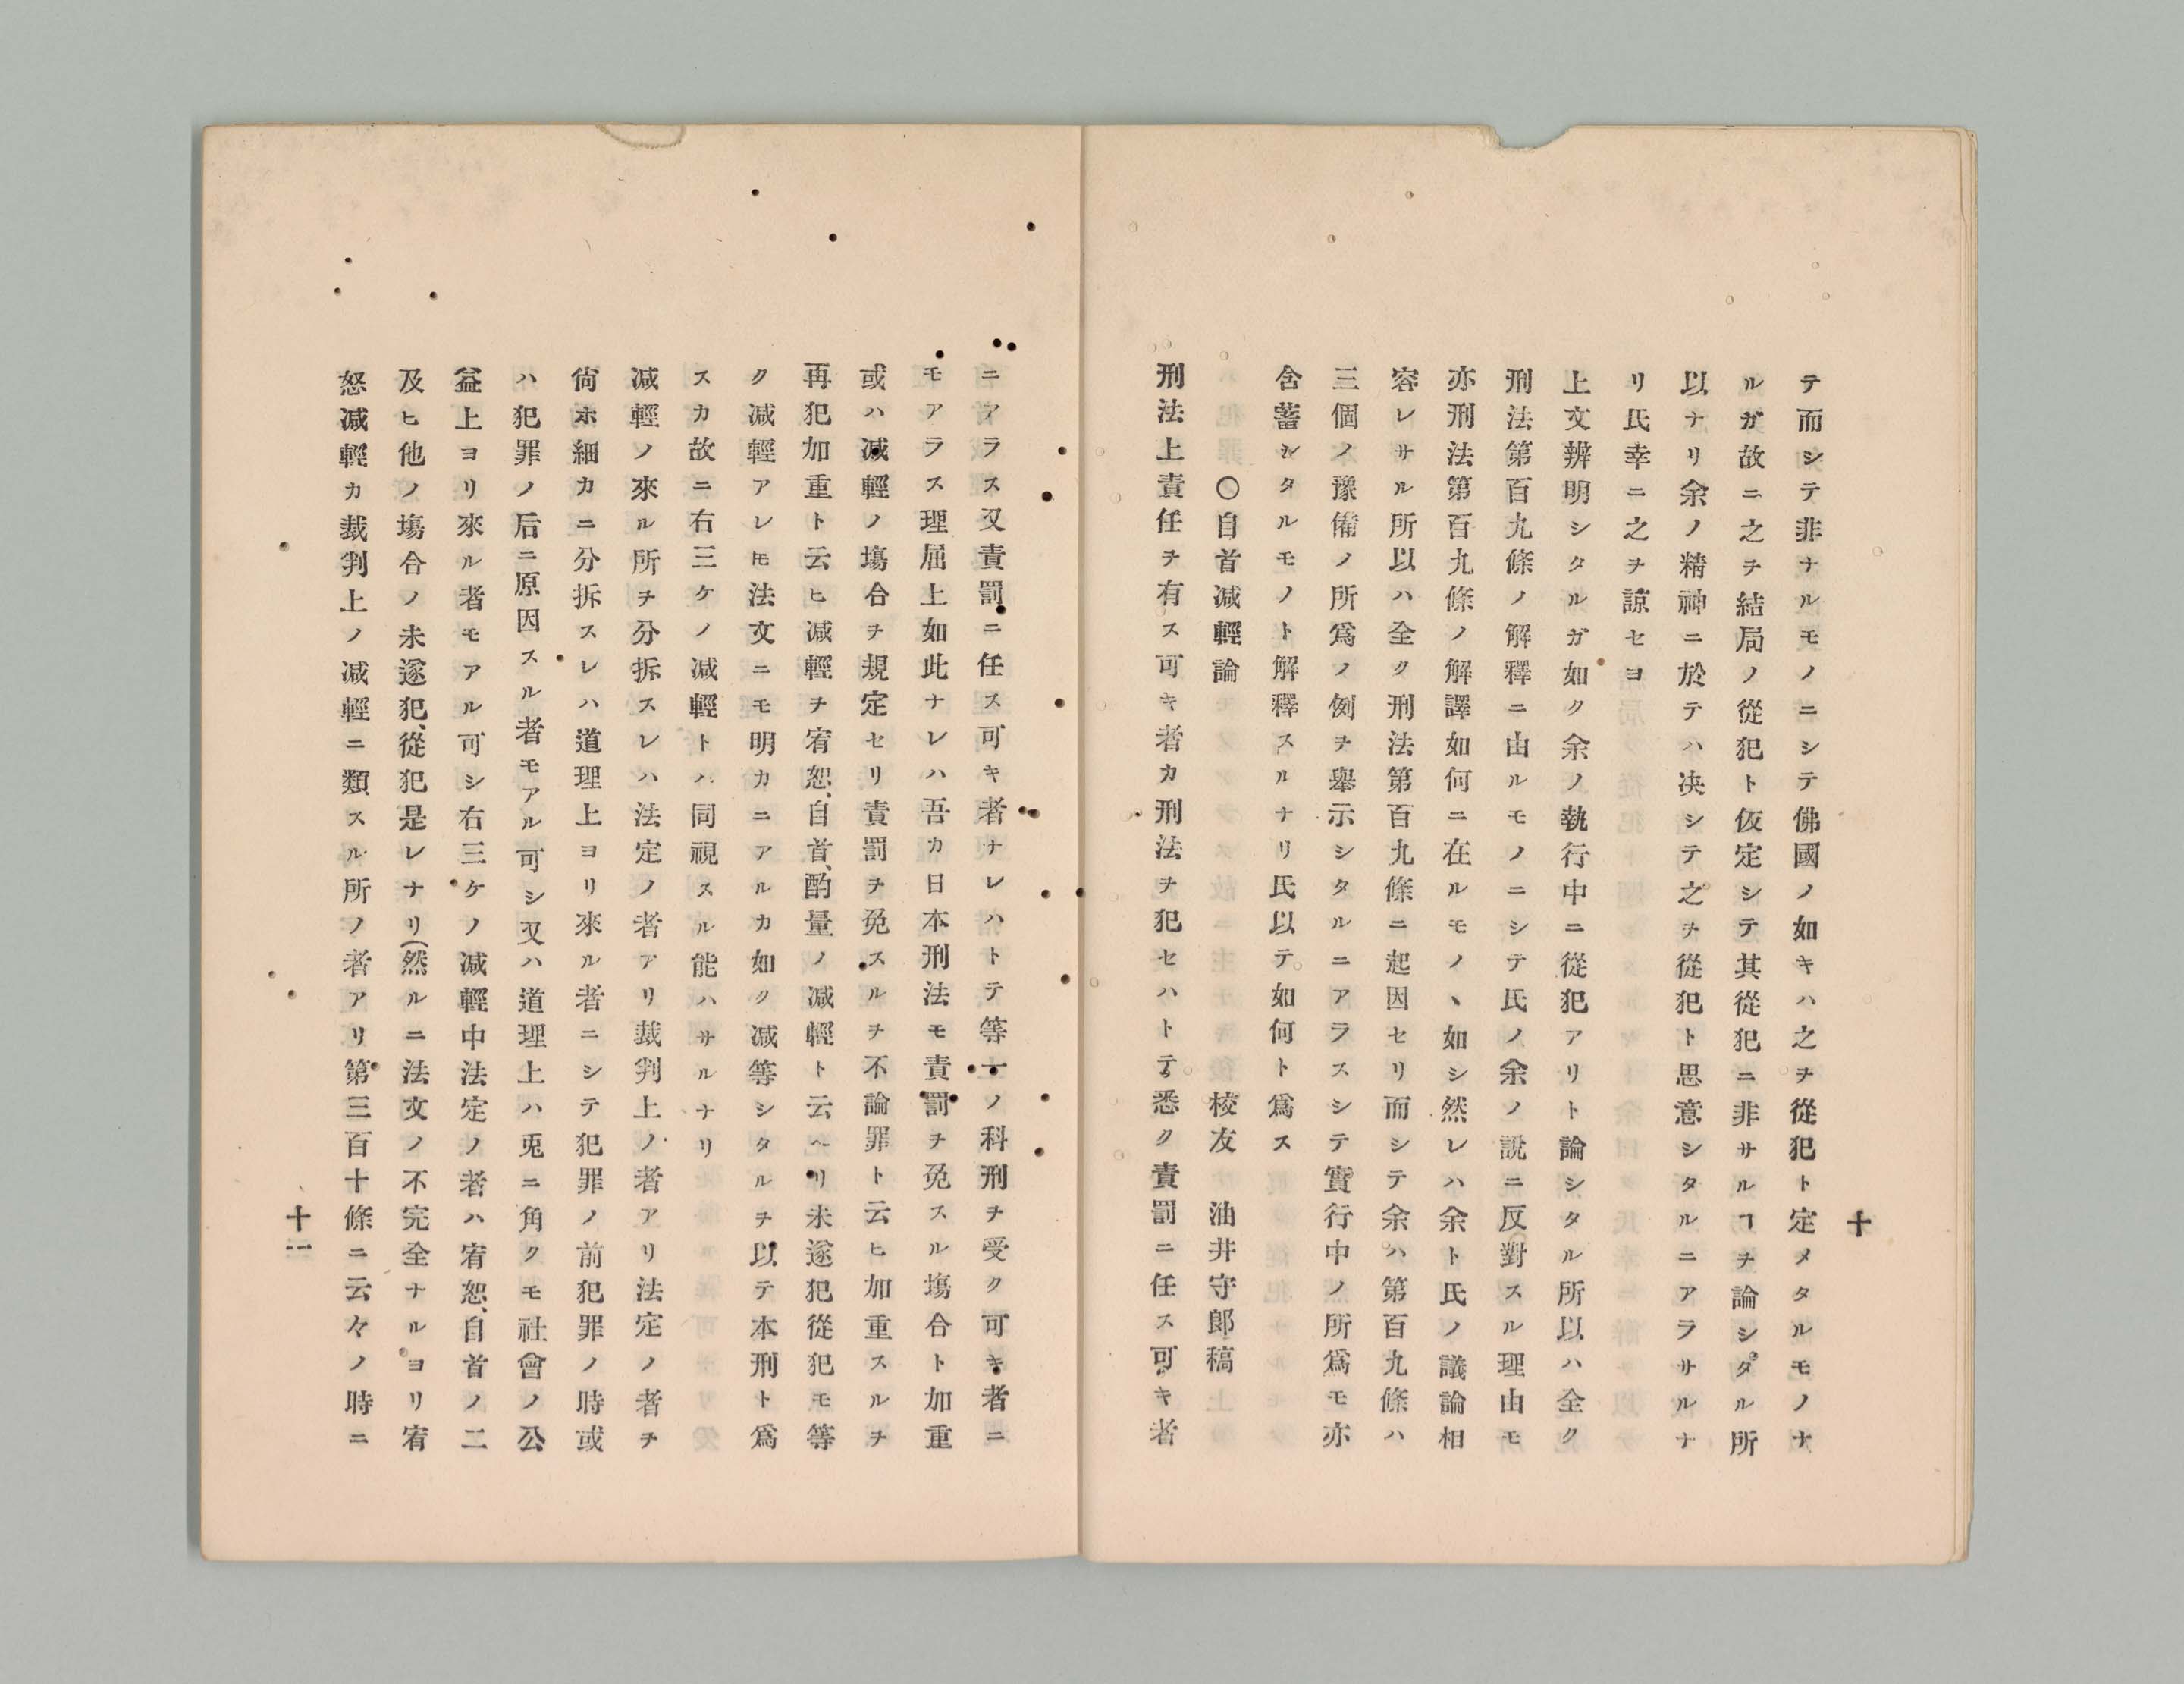 十
テ而シテ非ナルモノニシテ佛國ノ如キハ之ヲ從犯ト定メタルモノナ
ルガ故ニ之ヲ結局ノ從犯ト仮定シテ其從犯ニ非サルヿヲ論シタル所
以ナリ余ノ精神ニ於テハ决シテ之ヲ從犯ト思意シタルニアラサルナ
リ氏幸ニ之ヲ諒セヨ
上文辨明シタルガ如ク余ノ執行中ニ從犯アリト論シタル所以ハ全ク
刑法第百九條ノ解釋ニ由ルモノニシテ氏ノ余ノ説ニ反對スル理由モ
亦刑法第百九條ノ解譯如何ニ在ルモノヽ如シ然レハ余ト氏ノ議論相
容レサル所以ハ全ク刑法第百九條ニ起因セリ而シテ余ハ第百九條ハ
三個ノ豫備ノ所爲ノ例ヲ擧示シタルニアラスシテ實行中ノ所爲モ亦
含蓄シタルモノト解釋スルナリ氏以テ如何ト爲ス
〇自首减輕論
校友 油井守郎稿
刑法上責任ヲ有ス可キ者カ刑法ヲ犯セハトテ悉ク責罰ニ任ス可キ者
ニアラス又責罰ニ任ス可キ者ナレハトテ等一ノ科刑ヲ受ク可キ者ニ
モアラス理屈上如此ナレハ吾カ日本刑法モ責罰ヲ免スル塲合ト加重
或ハ减輕ノ塲合ヲ規定セリ責罰ヲ免スルヲ不論罪ト云ヒ加重スルヲ
再犯加重ト云ヒ减輕ヲ宥恕、自首、酌量ノ减輕ト云ヘリ未遂犯從犯モ等
ク减輕アレ𪜈法文ニモ明カニアルカ如ク减等シタルヲ以テ本刑ト爲
スカ故ニ右三ケノ减輕トハ同視スル能ハサルナリ
减輕ノ來ル所ヲ分拆スレハ法定ノ者アリ裁判上ノ者アリ法定ノ者ヲ
尙ホ細カニ分拆スレハ道理上ヨリ來ル者ニシテ犯罪ノ前犯罪ノ時或
ハ犯罪ノ后ニ原因スル者モアル可シ又ハ道理上ハ兎ニ角クモ社會ノ公
益上ヨリ來ル者モアル可シ右三ケノ减輕中法定ノ者ハ宥恕、自首ノ二
及ヒ他ノ塲合ノ未遂犯、從犯是レナリ(然ルニ法文ノ不完全ナルヨリ宥
怒减輕カ裁判上ノ减輕ニ類スル所ノ者アリ第三百十條ニ云々ノ時ニ
十一